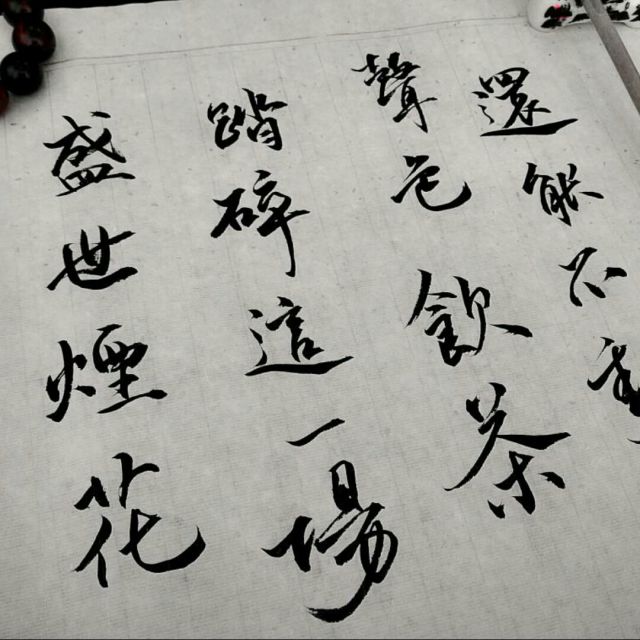 還能不
聲色飲茶
踏碎這一場
盛世煙花